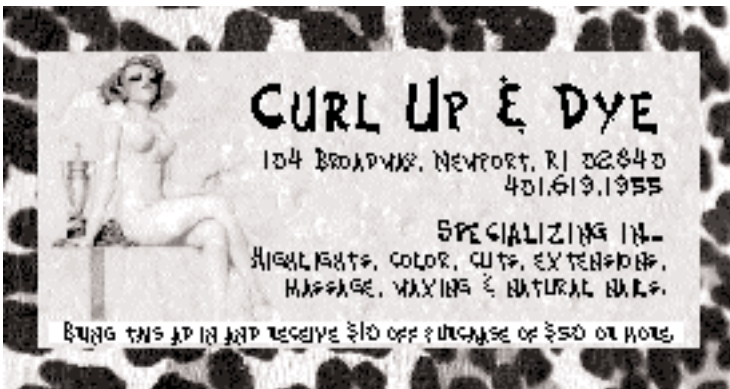 CURL UP & DYE
104 BROADWAY, NEWPORT, RI 02840
401.619.1955
SPECIALIZING IN...
HIGHLIGHTS, COLOR, CUTS, EXTENSIONS,
MASSAGE, WAXING & NATURAL NAILS.
BRING THIS AD IN AND RECEIVE $10 OFF PURCHASE OF $50 OR MORE.